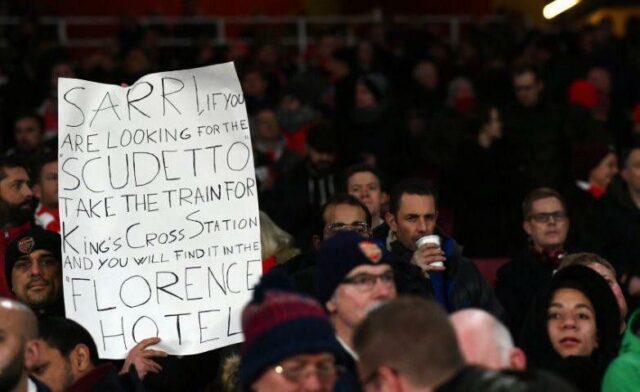 SARRI, IF YOU
ARE LOOKING FOR THE
"SCUDETTO"
TAKE THE TRAIN FOR
KING'S CROSS STATION
AND YOU WILL FIND IT IN THE
"FLORENCE
HOTEL